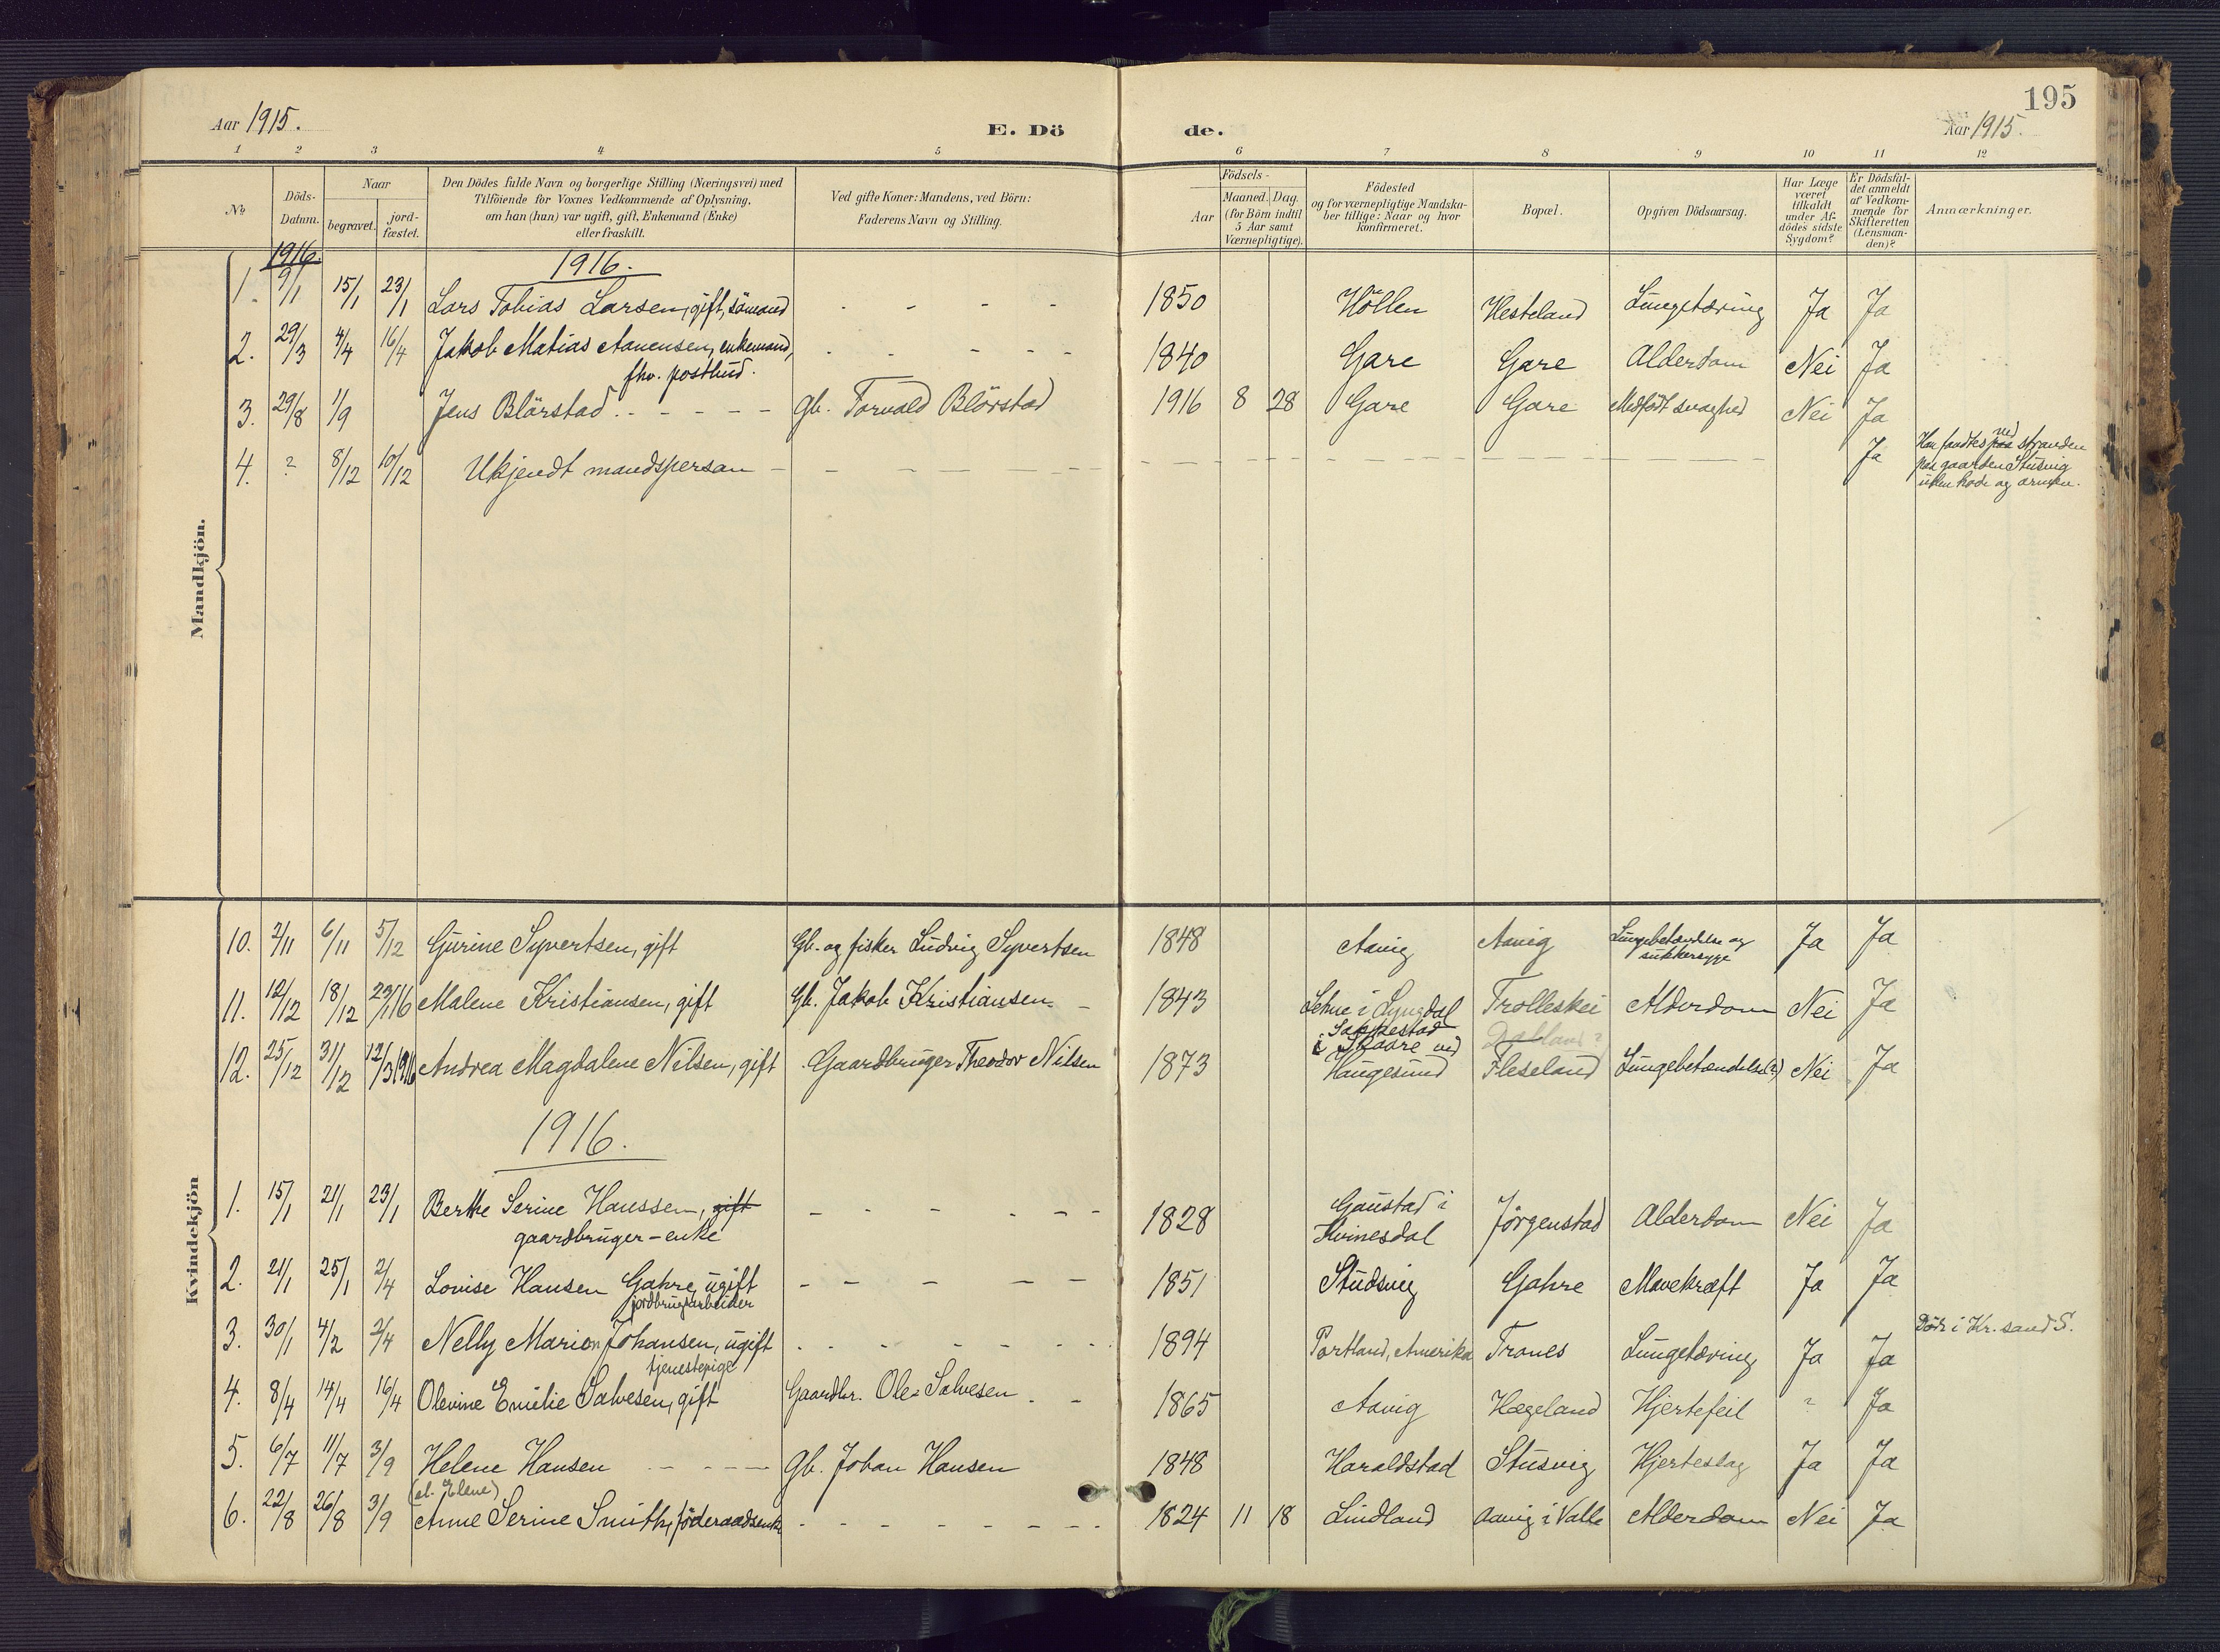 195
Aar 1915.
E. Dö de.
Aar 1915.
1 2 3 4 5 6 7 8 9 10 11 12
No
Döds-
Datum.
Naar
begravet.
jord-
fæstet.
Den Dödes fulde Navn og borgerlige Stilling (Næringsvei) med
Tilföiende for Voxnes Vedkommende af Oplysning,
om han (hun) var ugift, gift, Enkemand (Enke)
eller fraskilt.
Ved gifte Koner: Mandens, ved Börn:
Faderens Navn og Stilling.
Födsels-
Aar
Maaned.
Dag.
(for Börn indtil
5 Aar samt
Værnepligtige).
Födested
og for værnepligtige Mandska-
ber tillige: Naar og hvor
konfirmeret.
Bopæl.
Opgiven Dödsaarsag.
Har Læge
været
tilkaldt
under Af-
dödes sidste
Sygdom?
Er Dödsfal-
det anmeldt
af Vedkom-
mende for
Skifteretten
(Lensman-
den)?
Anmærkninger.
Mandkjön.
1916.
1916.
1. 9/1 15/1 23/1 Lars Tobias Larsen, gift, sömand - - - - 1850 Höllen Hesteland Lungetæring Ja Ja
2. 29/3 4/4 16/4 Jakob Matias Aanensen, enkemand, - - - - - 1840 Gare Gare Alderdom Nei Ja
fhv. postbud.
3. 29/8 1/9 Jens Blörstad - - - - - gb. Torvald Blörstad 1916 8 28 Gare Gare Medfödt svaghed Nei Ja
4. ? 8/12 10/12 Ukjendt mandsperson - - - - - - Ja
Han fandtes paa ved stranden
paa gaarden Stusvig
uten hode og armer.
Kvindekjön
10. 2/11 6/11 5/12 Gurine Syvertsen, gift Gb. og fisker Ludvig Syvertsen 1848 Aavig Aavig Lungebetændelse og Ja Ja
sukkersyge
11. 12/12 18/12 23/1 16 Malene Kristiansen, gift Gb. Jakob Kristiansen - 1843 Lehne i Lyngdal Trolleskei Alderdom Nei Ja
i Skaare ved
12. 25/12 31/12 12/3 1916 Andrea Magdalene Nilsen, gift Gaardbruger Theodor Nilsen 1873 Haugesund Fleseland Lungebetændelse(?) Nei Ja
1916.
1. 15/1 21/1 23/1 Berthe Serine Hanssen, gift - - - - - - 1828 Gaustad i Kvinesdal Jörgenstad Alderdom Nei Ja
gaardbruger-enke
2. 21/1 25/1 2/4 Lovise Hansen Gahre, ugift - - - - - 1851 Studsvig Gahre Mavekræft Ja Ja
jordbrugsarbeider
3. 30/1 4/2 2/4 Nelly Marion Johansen, ugift - - - - - 1894 Portland, Amerika Tranes Lungetæring Ja Ja Döde i Kr.sand S.
tjenestepige
4. 8/4 14/4 16/4 Olevine Emilie Salvesen, gift Gaardbr. Ole Salvesen - - 1865 Aavig Hægeland Hjertefeil ? Ja
5. 6/7 11/7 3/9 Helene Hansen - - - - gb. Johan Hansen 1848 Haraldstad Stusvig Hjerteslag Ja Ja
(el. Elene)
6. 22/8 26/8 3/9 Anne Serine Smith, föderaadsenke - - - - - - - 1824 11 18 Lindland Aavig i Valle Alderdom Nei Ja